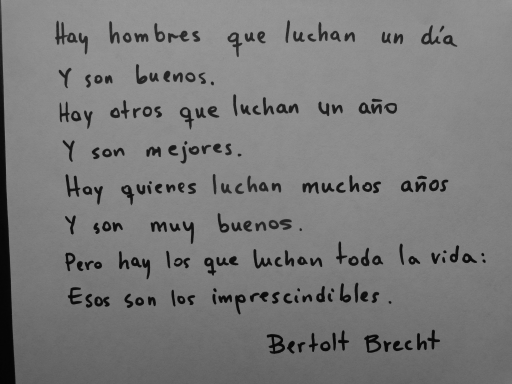 Hay hombres que luchan un día
Y son buenos.
Hay otros que luchan un año
Y son mejores.
Hay quienes luchan muchos años
Y son muy buenos.
Pero hay los que luchan toda la vida:
Esos son los imprescindibles.
Bertolt Brecht